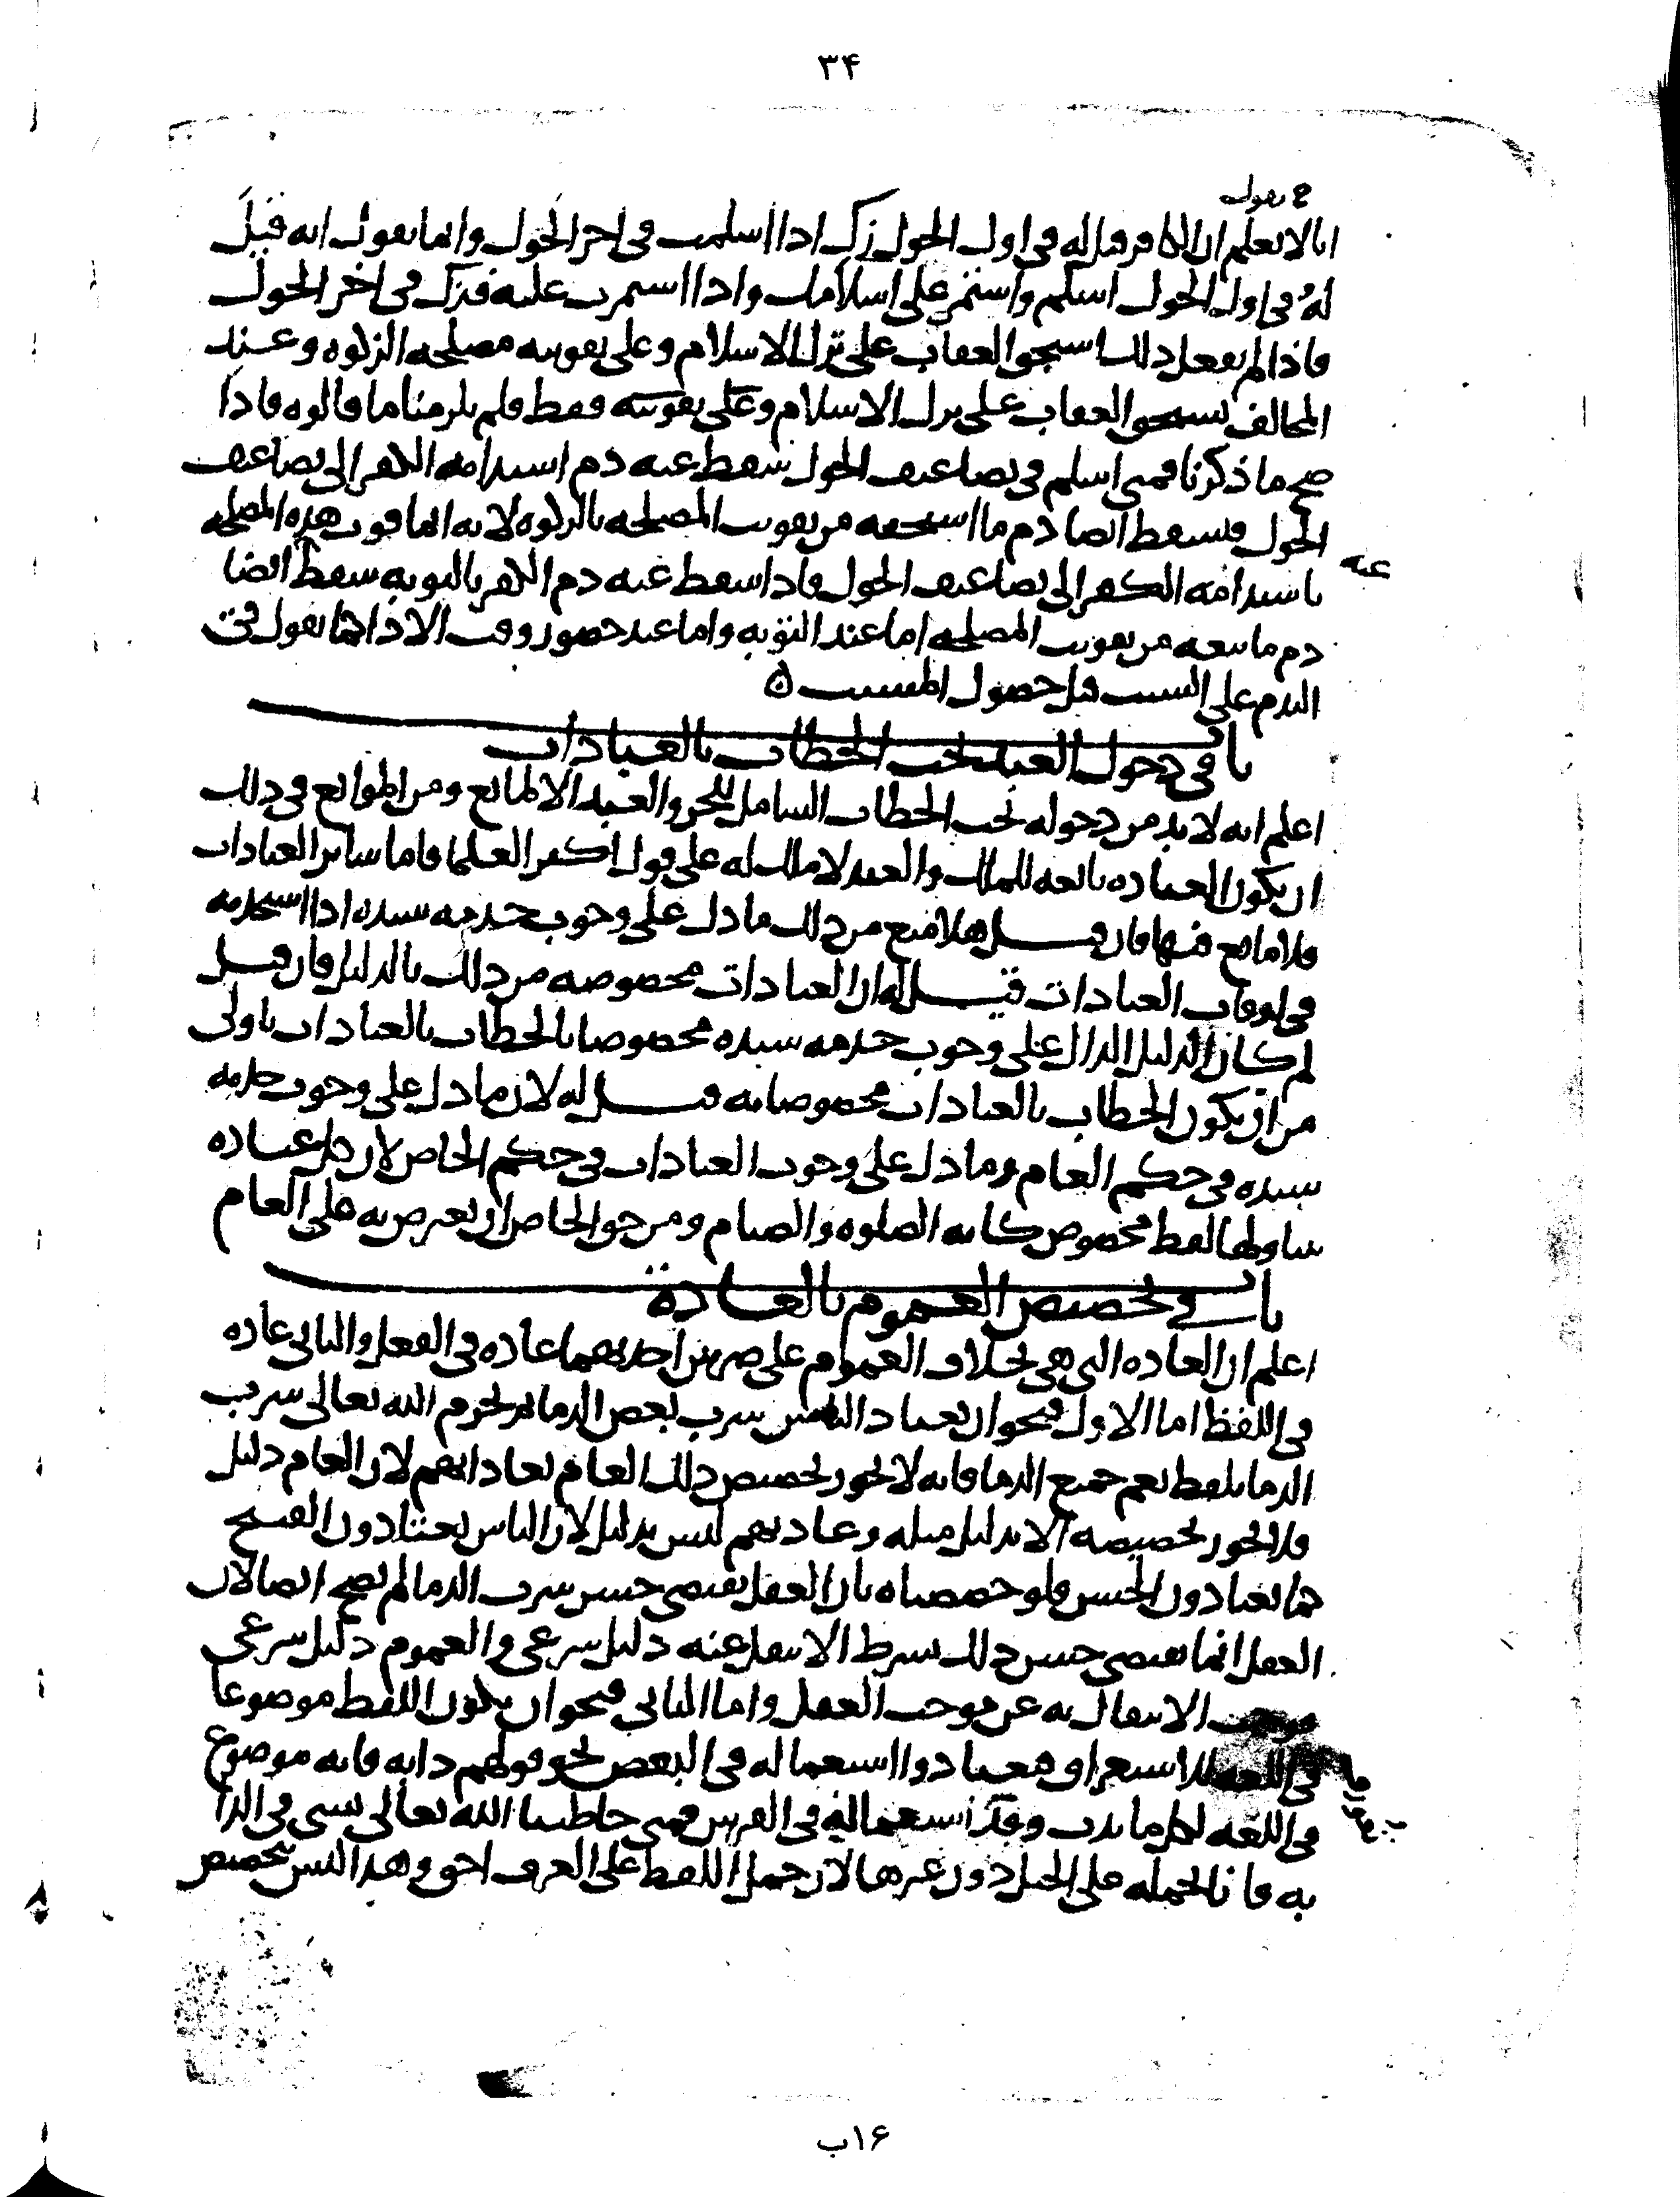 ۳۴
نقول
انا لا نعلم ان الكافر قيل له في اول الحول زك اذا اسلمت في اخر الحول وانما نقول انه قيل
له في اول الحول اسلم واستمر على اسلامك واذا استمررت عليه فزك في اخر الحول
فاذا لم يفعل ذلك استحق العقاب على ترك الاسلام وعلى تفويته مصلحة الزكوه وعند
المخالف يستحق العقاب على ترك الاسلام وعلى تفويته فقط فلم يلزمنا ما قالوه فاذا
صح ما ذكرنا فمتى اسلم في تضاعيف الحول سقط عنه ذم استدامه الكفر الى تضاعيف
الحول فيسقط ايضا ذم ما استحقه من تفويت المصلحه بالزكوه لانه انما فوت هذه المصلحه
عنه
باستدامه الكفر الى تضاعيف الحول فاذا سقط عنه ذم الكفر بالتوبه سقط ايضا
ذم ما تبعه من تفويت المصلحه اما عند التوبه واما عند حضور وقت الاداء كما نقول في
الندم على السبب قبل حصول المسبب ٥
باب في دخول العبد تحت الخطاب بالعبادات
اعلم انه لا بد من دخوله تحت الخطاب الشامل للحر والعبد الا لمانع ومن الموانع في ذلك
ان يكون العباده تابعه للملك والعبد لا ملك له على قول اكثر العلما فاما سائر العبادات
فلا مانع فيها فان قيل هلا منع من ذلك ما دل على وجوب خدمه سيده اذا استخدمه
في اوقات العبادات قيل له ان العبادات مخصوصه من ذلك بالدليل فان قيل
لم كان الدليل الدال على وجوب خدمه سيده مخصوصا بالخطاب بالعبادات باولى
من ان يكون الخطاب بالعبادات مخصوصا به قيل له لان ما دل على وجوب خدمه
سيده في حكم العام وما دل على وجوب العبادات في حكم الخاص لان كل عباده
يتناولها لفظ مخصوص كايه الصلوه والصيام ومن حق الخاص ان يعترض به على العام
باب في تخصيص العموم بالعادة
اعلم ان العاده التي هي بخلاف العموم على ضربين احدهما عاده في الفعل والثاني عاده
في اللفظ اما الاول فنحو ان يعتاد الناس شرب بعض الدما ثم يحرم الله تعالى شرب
الدما بلفظ يعم جميع الدما فانه لا يجوز تخصيص ذلك العام بعاداتهم لان العام دليل
فلا يجوز تخصيصه الا بدليل مثله وعادتهم ليس بدليل لان الناس يعتادون القبيح
كما يعتادون الحسن فلو خصصناه بان العقل يقتضي حسن شرب الدما لم يصح ايضا لان
العقل انما يقتضي حسن ذلك بشرط الا ينقل عنه دليل شرعي والعموم دليل شرعي
فوجب الانتقال به عن موجب العقل واما الثاني فنحو ان يكون اللفظ موضوعا
في اللغه للاستغراق فيعتادوا استعماله في البعض نحو قولهم دابه فانه موضوع
في اللغه لكل ما يدب وقد استعماله في الفرس فمتى خاطبنا الله تعالى بشي في الدا
به فانا نحمله على الخيل دون غيرها لان حمل اللفظ على العرف احق وهذا ليس بتخصيص
۱۶ب